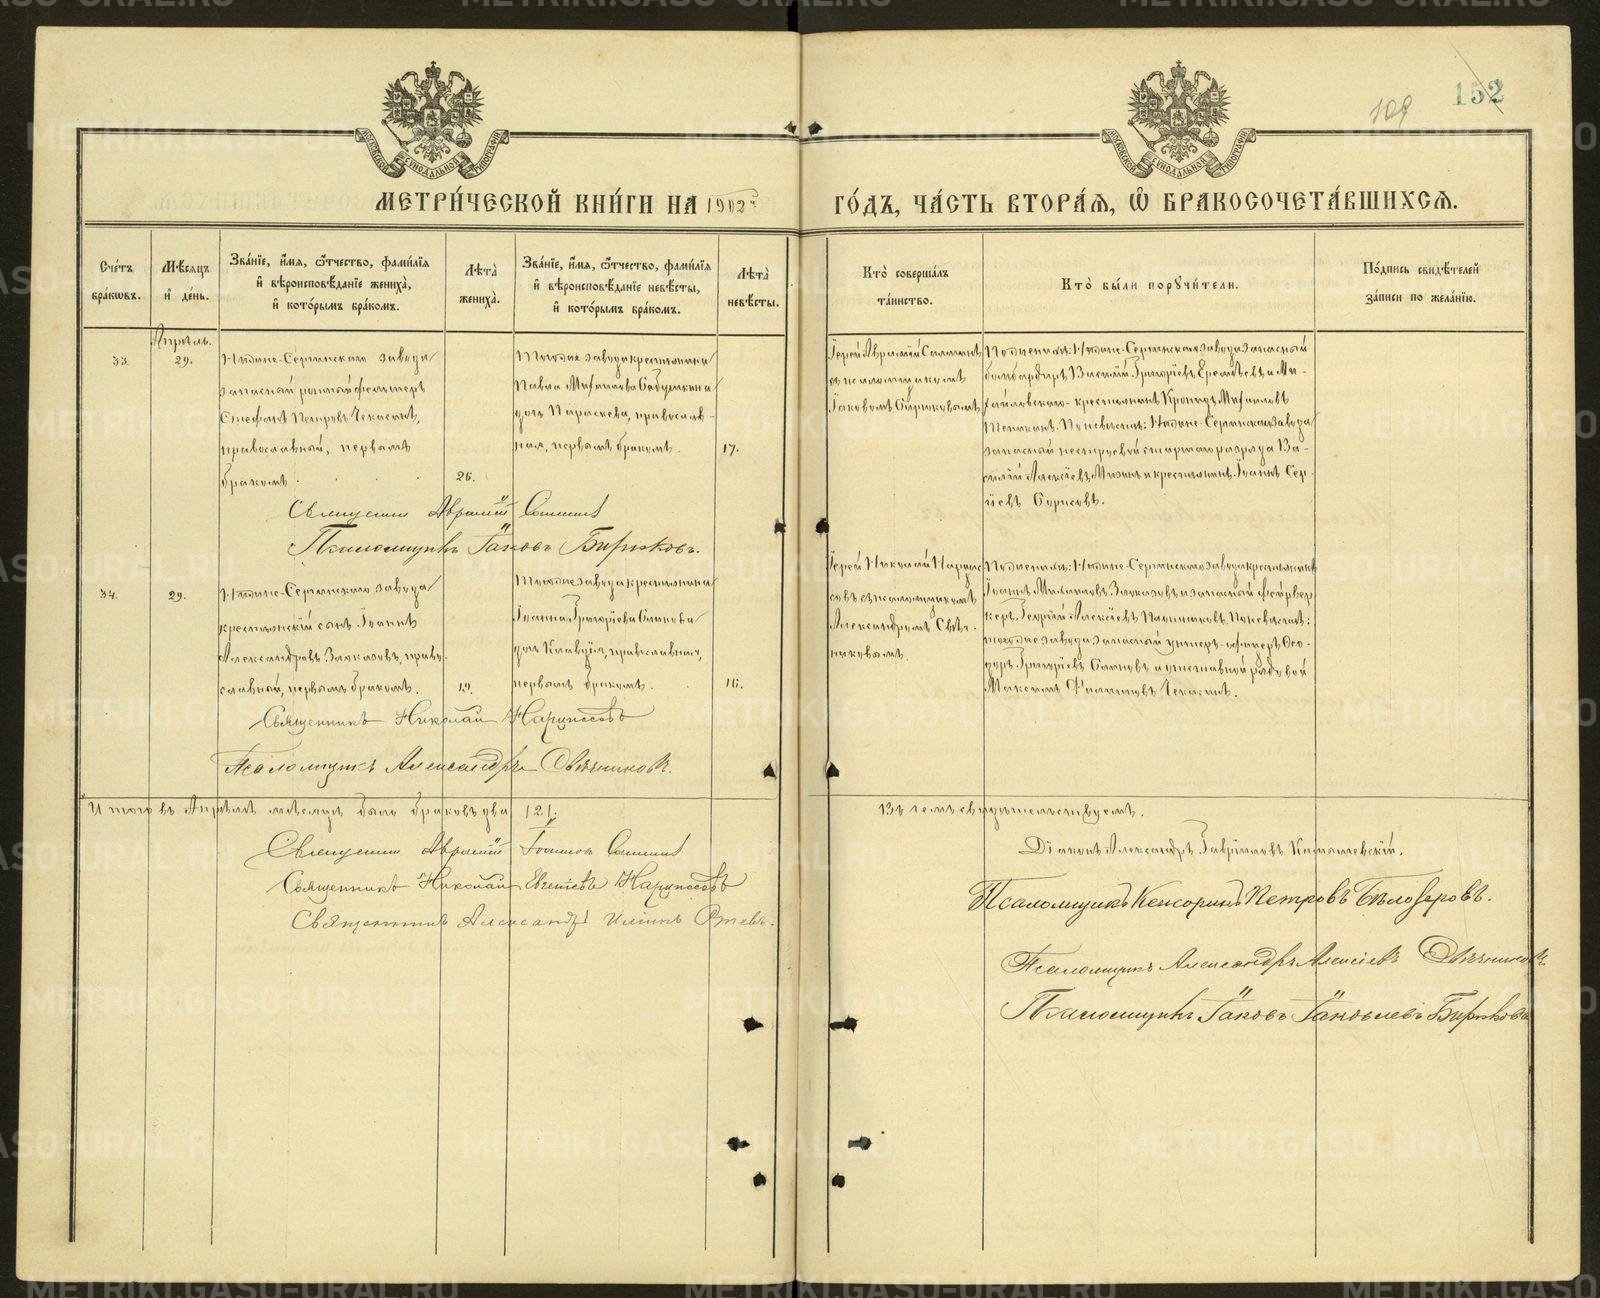 152
109
МОСКОВСКОЙ СѴНОДАЛЬНОЙ ТИПОГРАФІИ
МОСКОВСКОЙ СѴНОДАЛЬНОЙ ТИПОГРАФІИ
МЕТРИ́ЧЕСКОЙ КНИ́ГИ НА 1902й ГО́ДЪ, ЧА́СТЬ ВТОРА́Я, Ѽ БРАКОСОЧЕТА́ВШИХСЯ.
Сче́тъ
бра́кωвъ.
Мѣ́сяцъ
и҆ де́нь.
Зва́нїе, и҆́мя, ѻ҆́тчество, фами́лїя
и҆ вѣроисповѣ́данїе жениха̀,
и҆ кото́рымъ бра́комъ.
Лѣ́та̀
жениха̀.
Зва́нїе, и҆́мя, ѻ҆́тчество, фами́лїя
и҆ вѣроисповѣ́данїе невѣ́сты,
и҆ кото́рымъ бра́комъ.
Лѣ́та̀
невѣ́сты.
Кто̀ соверша́лъ
та́инство.
Кто̀ бы́ли порꙋчи́тели.
По́дпись свидѣ́телей
за́писи по жела́нїю.
33.
Апрѣль.
29.
Нижне-Сергинскаго завода
запасный
Стефанъ Петровъ Чекасинъ,
православный, первымъ
бракомъ.
26.
Того же завода крестьянина
Павла Михаилова Бабушкина
дочь Параскева, православ-
ная, первымъ бракомъ.
17.
Іерей Аврамій
съ псаломщикомъ
Іаковомъ Бирюковымъ
По женихѣ: Нижне-Сергинскаго завода запасный
бомбардиръ Василій Григоріевъ Еремѣевъ и Ми-
хайловскаго крестьянинъ Михаиловъ
По невѣстѣ: Нижне-Сергинскаго завода
запасный нестроевой старшаго разряда Ва-
силій Алексіевъ и крестьянинъ Іоаннъ Сер-
гіевъ
Священникъ Аврамій
Псаломщикъ Іаковъ Бирюковъ.
34.
29.
Нижне-Сергинскаго завода
крестьянскій сынъ Іоаннъ
Александровъ Злоказовъ, право-
славный, первымъ бракомъ.
19.
Того же завода крестьянина
Іоанна Григоріева
дочь Клавдія, православная,
первымъ бракомъ.
16.
Іерей Николай Нарциссовъ
съ псаломщикомъ
Александромъ Свѣч-
никовымъ.
По женихѣ: Нижне-Сергинскаго завода крестьянинъ
Іоаннъ Михаиловъ Злоказовъ и запасный фейервер-
керъ Георгій Алексіевъ По невѣстѣ:
того же завода запасный унтеръ-офицеръ Ѳео-
доръ Григоріевъ и отставной рядовой
Максимъ Филипповъ Чекасинъ.
Священникъ Николай Нарциссовъ
Псаломщикъ Александръ Свѣчниковъ.
Итого въ Апрѣлѣ мѣсяцѣ было браковъ два /2/.
Въ чемъ свидѣтельствуемъ.
Священникъ Аврамій Іоанновъ
Священникъ Николай Евгеніевъ Нарциссовъ
Священникъ Александръ Ильинъ
Діаконъ Александръ Гавріиловъ
Псаломщикъ Кенсоринъ Петровъ Бѣлозеровъ.
Псаломщикъ Александръ Алексіевъ Свѣчниковъ
Псаломщикъ Іаковъ Іаковлевъ Бирюковъ
METRIKI.GASO-URAL.RU